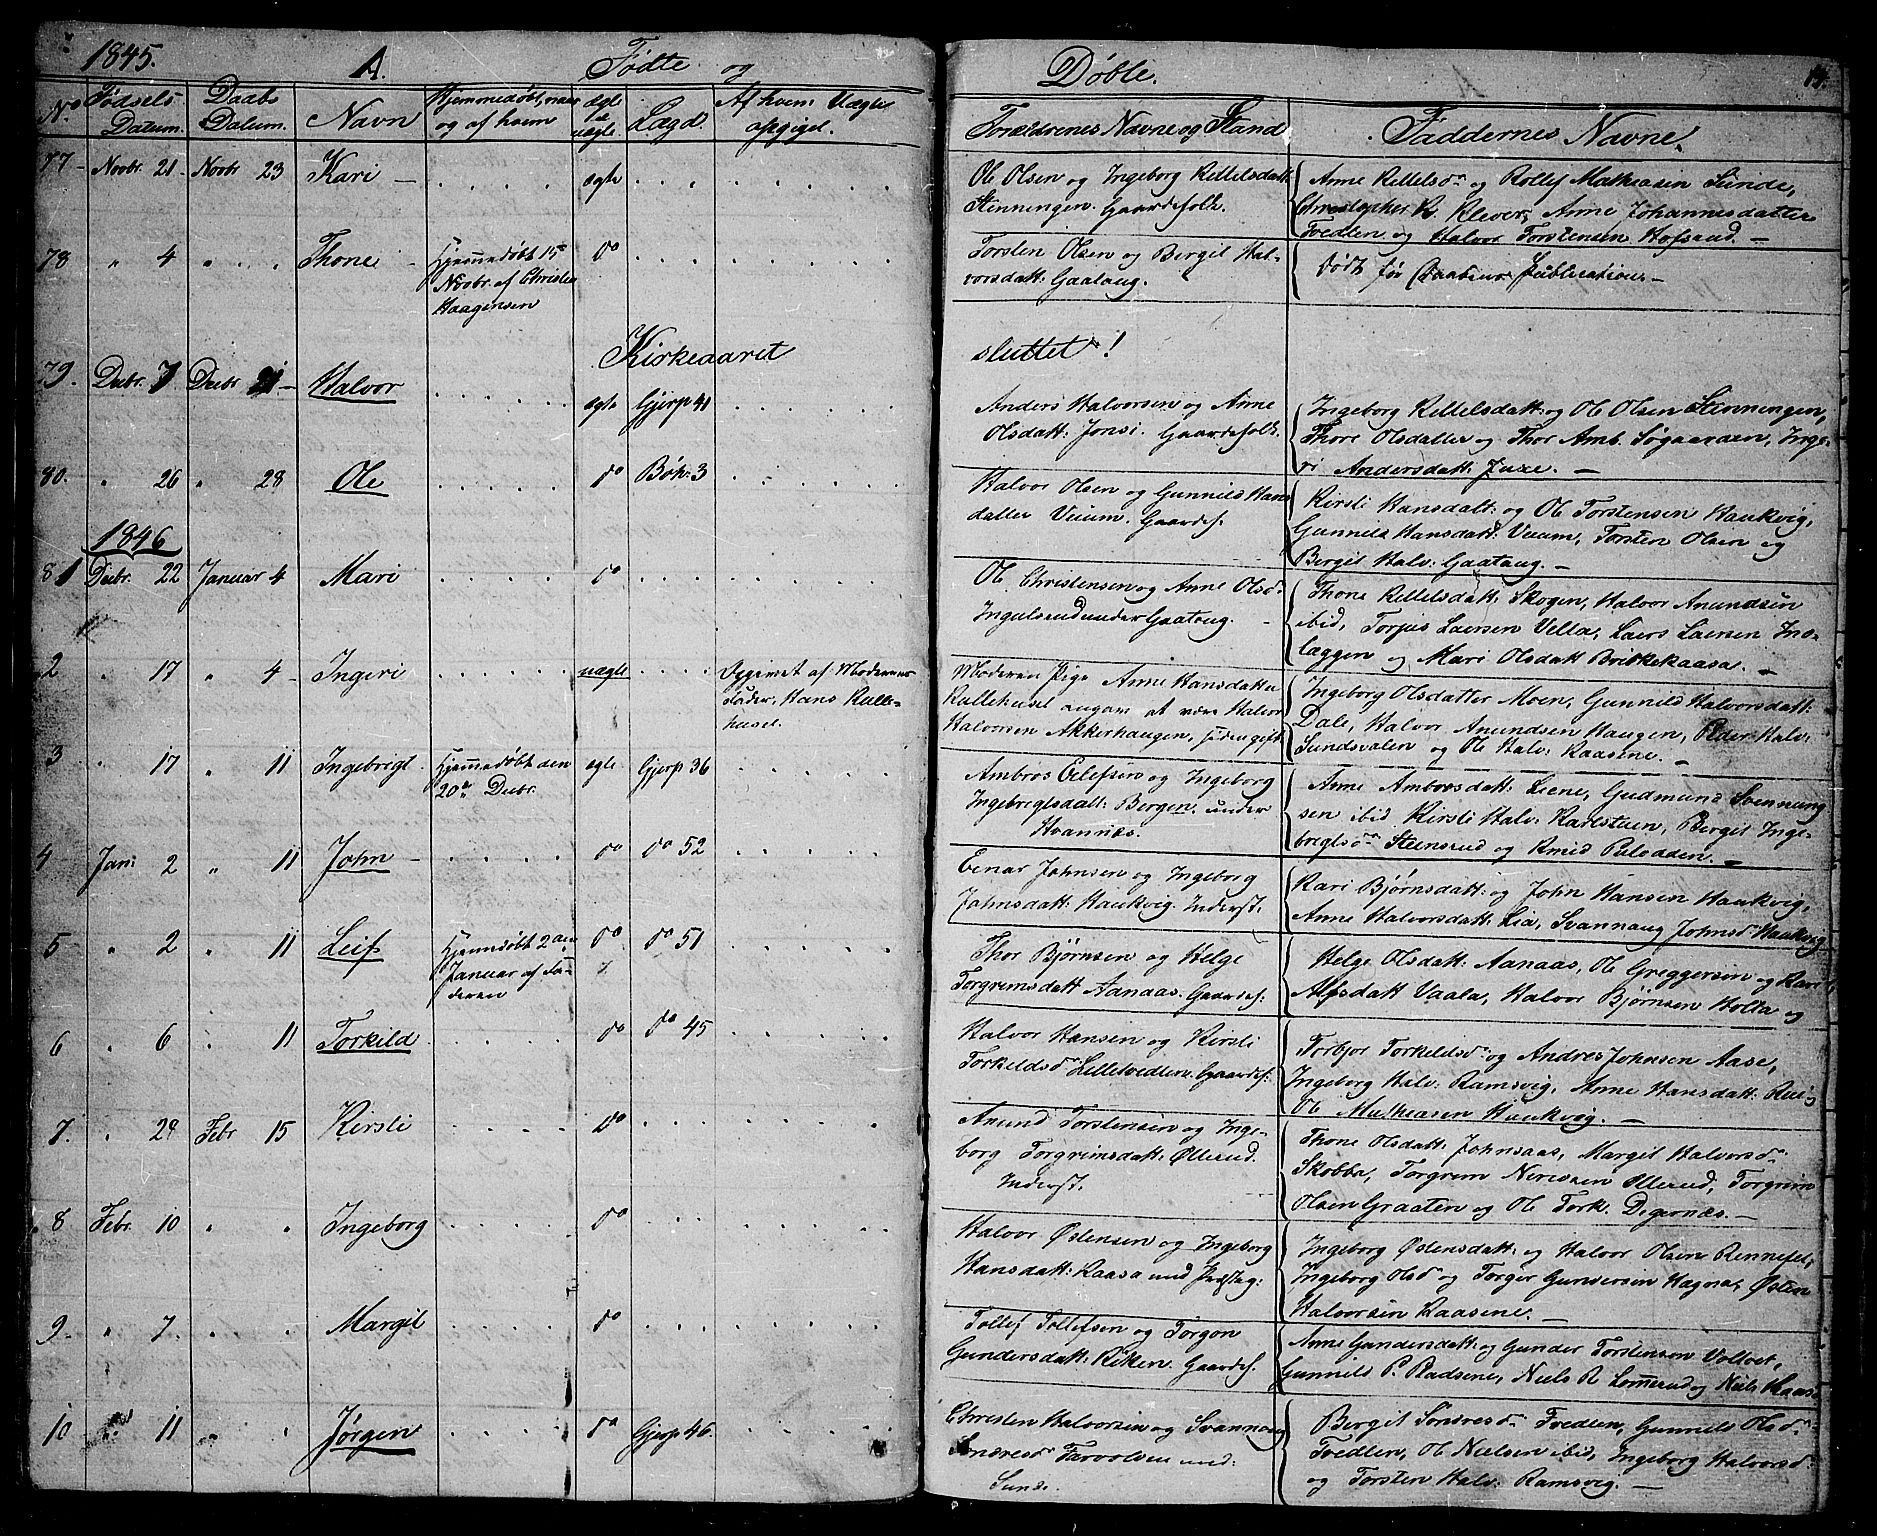 1845. A. Fødte og Døbte. 14.
No. Fødsels Datum. Daabs Datum. Navn Hjemmedøbt, naar og af hvem ægte el. uægte. Lægd. Af hvem Uægte opgivet. Forældrenes Navne og Stand Faddernes Navne.
77 Novbr. 21 Novbr 23 Kari ægte
Ole Olsen og Ingeborg Kittelsdatt:
Stenningen. Gaardefolk.
Anne Kittelsdr og Rollef Mathiasen Sunde,
Christopher K. Klever, Anne Johannesdatter
Tvedten og Halvor Torstensen Hofsrud.
78 " 4 " " Thone Hjemmedøbt 15
Novbr. af Christen
Haagensen do
Torsten Olsen og Bergit Hal-
vorsdatt: Gaataug.
Dødt før Daabens Publication.
Kirkeaaret sluttet!
79. Decbr. 7 Decbr 21 Halvor ægte Gjerp 41
Anders Halvorsen og Anne
Olsdatt: Jonsi. Gaardefolk.
Ingeborg Kittelsdatt: og Ole Olsen Stenningen,
Thore Olsdatter og Thor Amb. Søgaarden, Inge-
ri Andersdatt: Juxe.
80. " 26 " 28 Ole do Bøh. 3
Halvor Olsen og Gunnild Hans
datter Vuum. Gaardef.
Kirsti Hansdatt: og Ole Torstensen Haukvig,
Gunnild Hansdatt: Vuum, Torsten Olsen og
Bergit Halv: Gaataug.
1846
81 Decbr. 22 Januar 4 Mari do
Ole Christensen og Anne Olsd:
Ingulsrud under Gaataug.
Thone Kittelsdatt: Skogen, Halvor Anundsen
ibid, Torjus Larsen Vella, Lars Larsen Ind-
læggen og Mari Olsdatt Brikkekaasa.
2 " 17 " 4 Ingeri uægte Opgivet af Moderens
Fader, Hans Kulle-
huset.
Moderen Pige Anne Hansdatter
Kullehuset angav at være Halvor
Halvorsen Akkerhaugen, siden gift.
Ingeborg Olsdatter Moen, Gunnild Halvorsdatt:
Dale, Halvor Anundsen Haugen, Peder Halv:
Sundsvalen og Ole Halv: Kaasene.
3 " 17 " 11 Ingebrigt Hjemmedøbt den
20de Decbr. ægte Gjerp 36
Ambros Eilefsen og Ingeborg
Ingebregtsdatt: Bergen. under
Hvannæs.
Anne Ambrosdatt: Liene, Gudmund Svennung
sen ibid Kirsti Halv: Karlstuen, Bergit Inge-
bregtsdr Steensrud og Knud Pulodden.
4 Jan: 2 " 11 John do do 52
Eenar Johnsen og Ingeborg
Johnsdatt: Haukvig. Inderst.
Kari Bjørnsdatt: og John Hansen Haukvig,
Anne Halvorsdatt: Lia, Svannaug Johnsd Haukvig
5 " 2 " 11 Leif Hjemmedøbt 2den
Januar af Fa-
deren do do 51
Thor Bjørnsen og Helge
Torgrimsdatt Aanaas. Gaardef:
Helge Olsdatt: Aanaas, Ole Greggersen og Kari
Alfsdatt Vaala, Halvor Bjørnsen Holta og
6 " 6 " 11 Torkild do do 45
Halvor Hansen og Kirsti
Torkeldsd Lilletvedten. Gaardef:
Torbjør Torkeldsd og Andres Johnsen Aase,
Ingeborg Halv: Ramsvig, Anne Hansdatt:
Ole Mathiasen Haukvig.
7. " 28 Febr 15 Kirsti do
Anund Torstensen og Inge-
borg Torgrimsdatt: Ollerud.
Inderst.
Thone Olsdatt: Johnsaas, Margit Halvorsdr
Skobba, Torgrim Nirissen Ollerud, Torgrim
Olsen Graaten og Ole Tork. Digernæs.
8 Febr. 10 " " Ingeborg do
Halvor Østensen og Ingeborg
Hansdatt: Kaasa med Prestag:
Ingeborg Østensdatt: og Halvor Olsen Rennefelt,
Ingeborg Olsd og Torger Gundersen Hagna, Østen
Halvorsen Kaasene.
9 " 7. " " Margit do
Tollef Tollefsen og Torgon
Gundersdatt: Riken. Gaardef.
Anne Gundersdatt: og Gunder Torstensen Voltvet,
Gunnild P. Radsene, Niels R. Lomerud og Niels Kaase
10 " 11 " " Jørgen do Gjerp 46.
Christen Halvorsen og Svannaug
Sondresd Farvolden und:
Sunde.
Bergit Sondresdr Tvedten, Gunnild Olsdr
Tvedten, Ole Nielsen ibid, Ingeborg Halvorsd:
og Torsten Halv: Ramsvig.